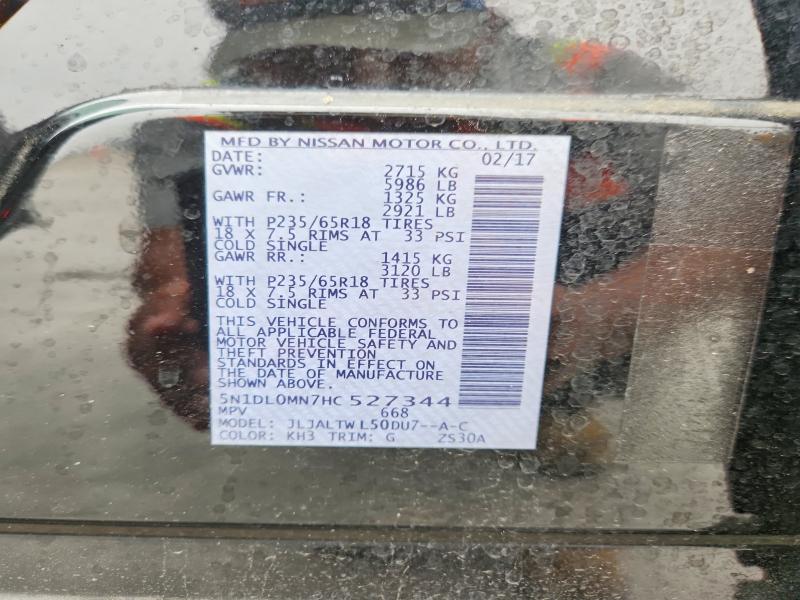 MFD BY NISSAN MOTOR CO., LTD.
DATE: 02/17
GVWR: 2715 KG
5986 LB
GAWR FR.: 1325 KG
2921 LB
WITH P235/65R18 TIRES
18 X 7.5 RIMS AT 33 PSI
COLD SINGLE
GAWR RR.: 1415 KG
3120 LB
WITH P235/65R18 TIRES
18 X 7.5 RIMS AT 33 PSI
COLD SINGLE
THIS VEHICLE CONFORMS TO
ALL APPLICABLE FEDERAL
MOTOR VEHICLE SAFETY AND
THEFT PREVENTION
STANDARDS IN EFFECT ON
THE DATE OF MANUFACTURE
SHOWN ABOVE.
5N1DL0MN7HC 527344
MPV 668
MODEL: JLJALTW L50DU7--A-C
COLOR: KH3 TRIM: G ZS30A